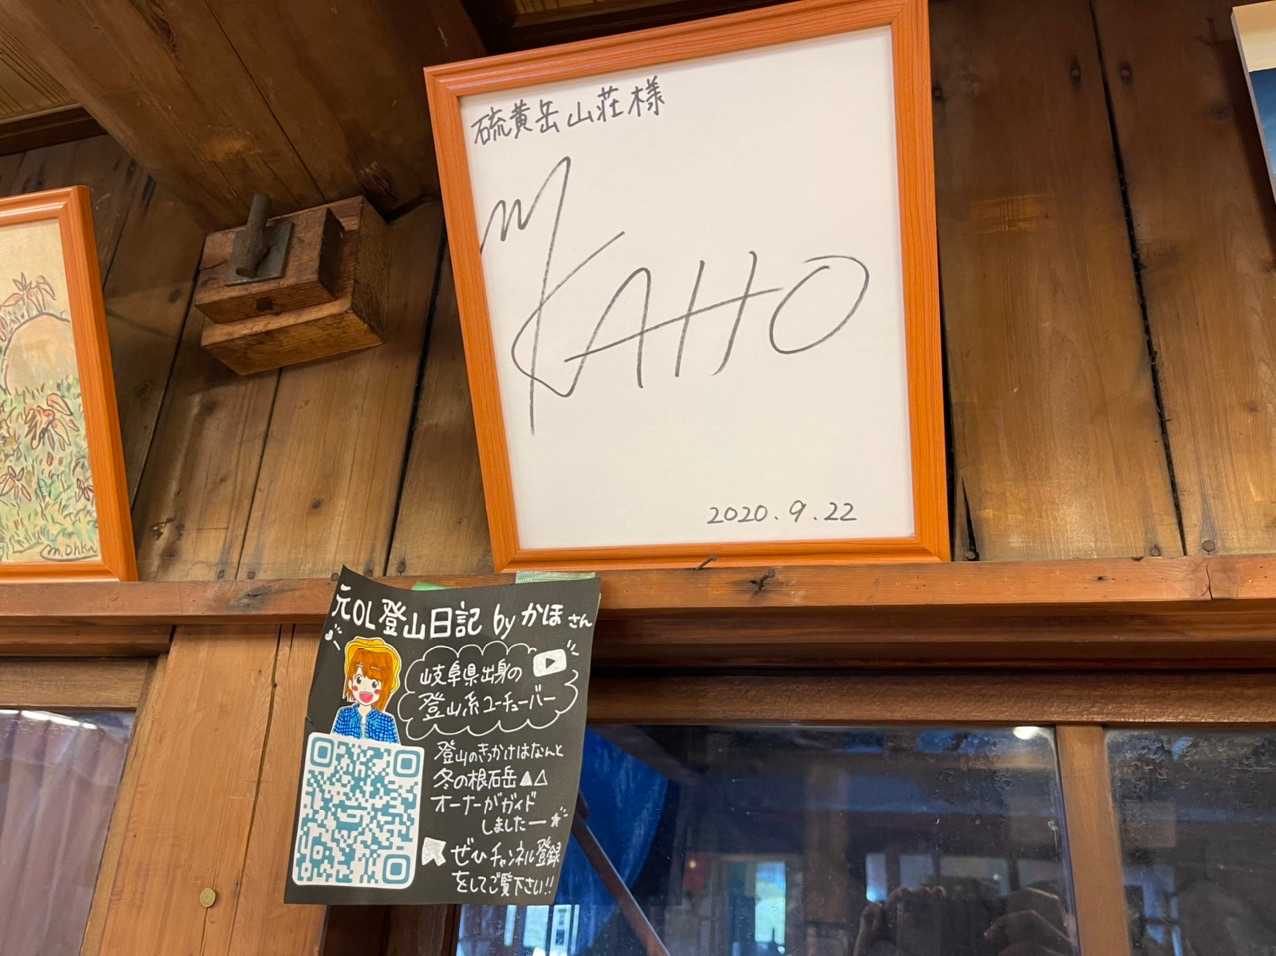 硫黄岳山荘様
M KAHO
2020.9.22
M.Ohki
元OL登山日記 by かほさん
岐阜県出身の
登山系ユーチューバー
登山のきっかけはなんと
冬の根石岳
オーナーがガイド
しましたー
ぜひチャンネル登録
をしてご覧下さい!!